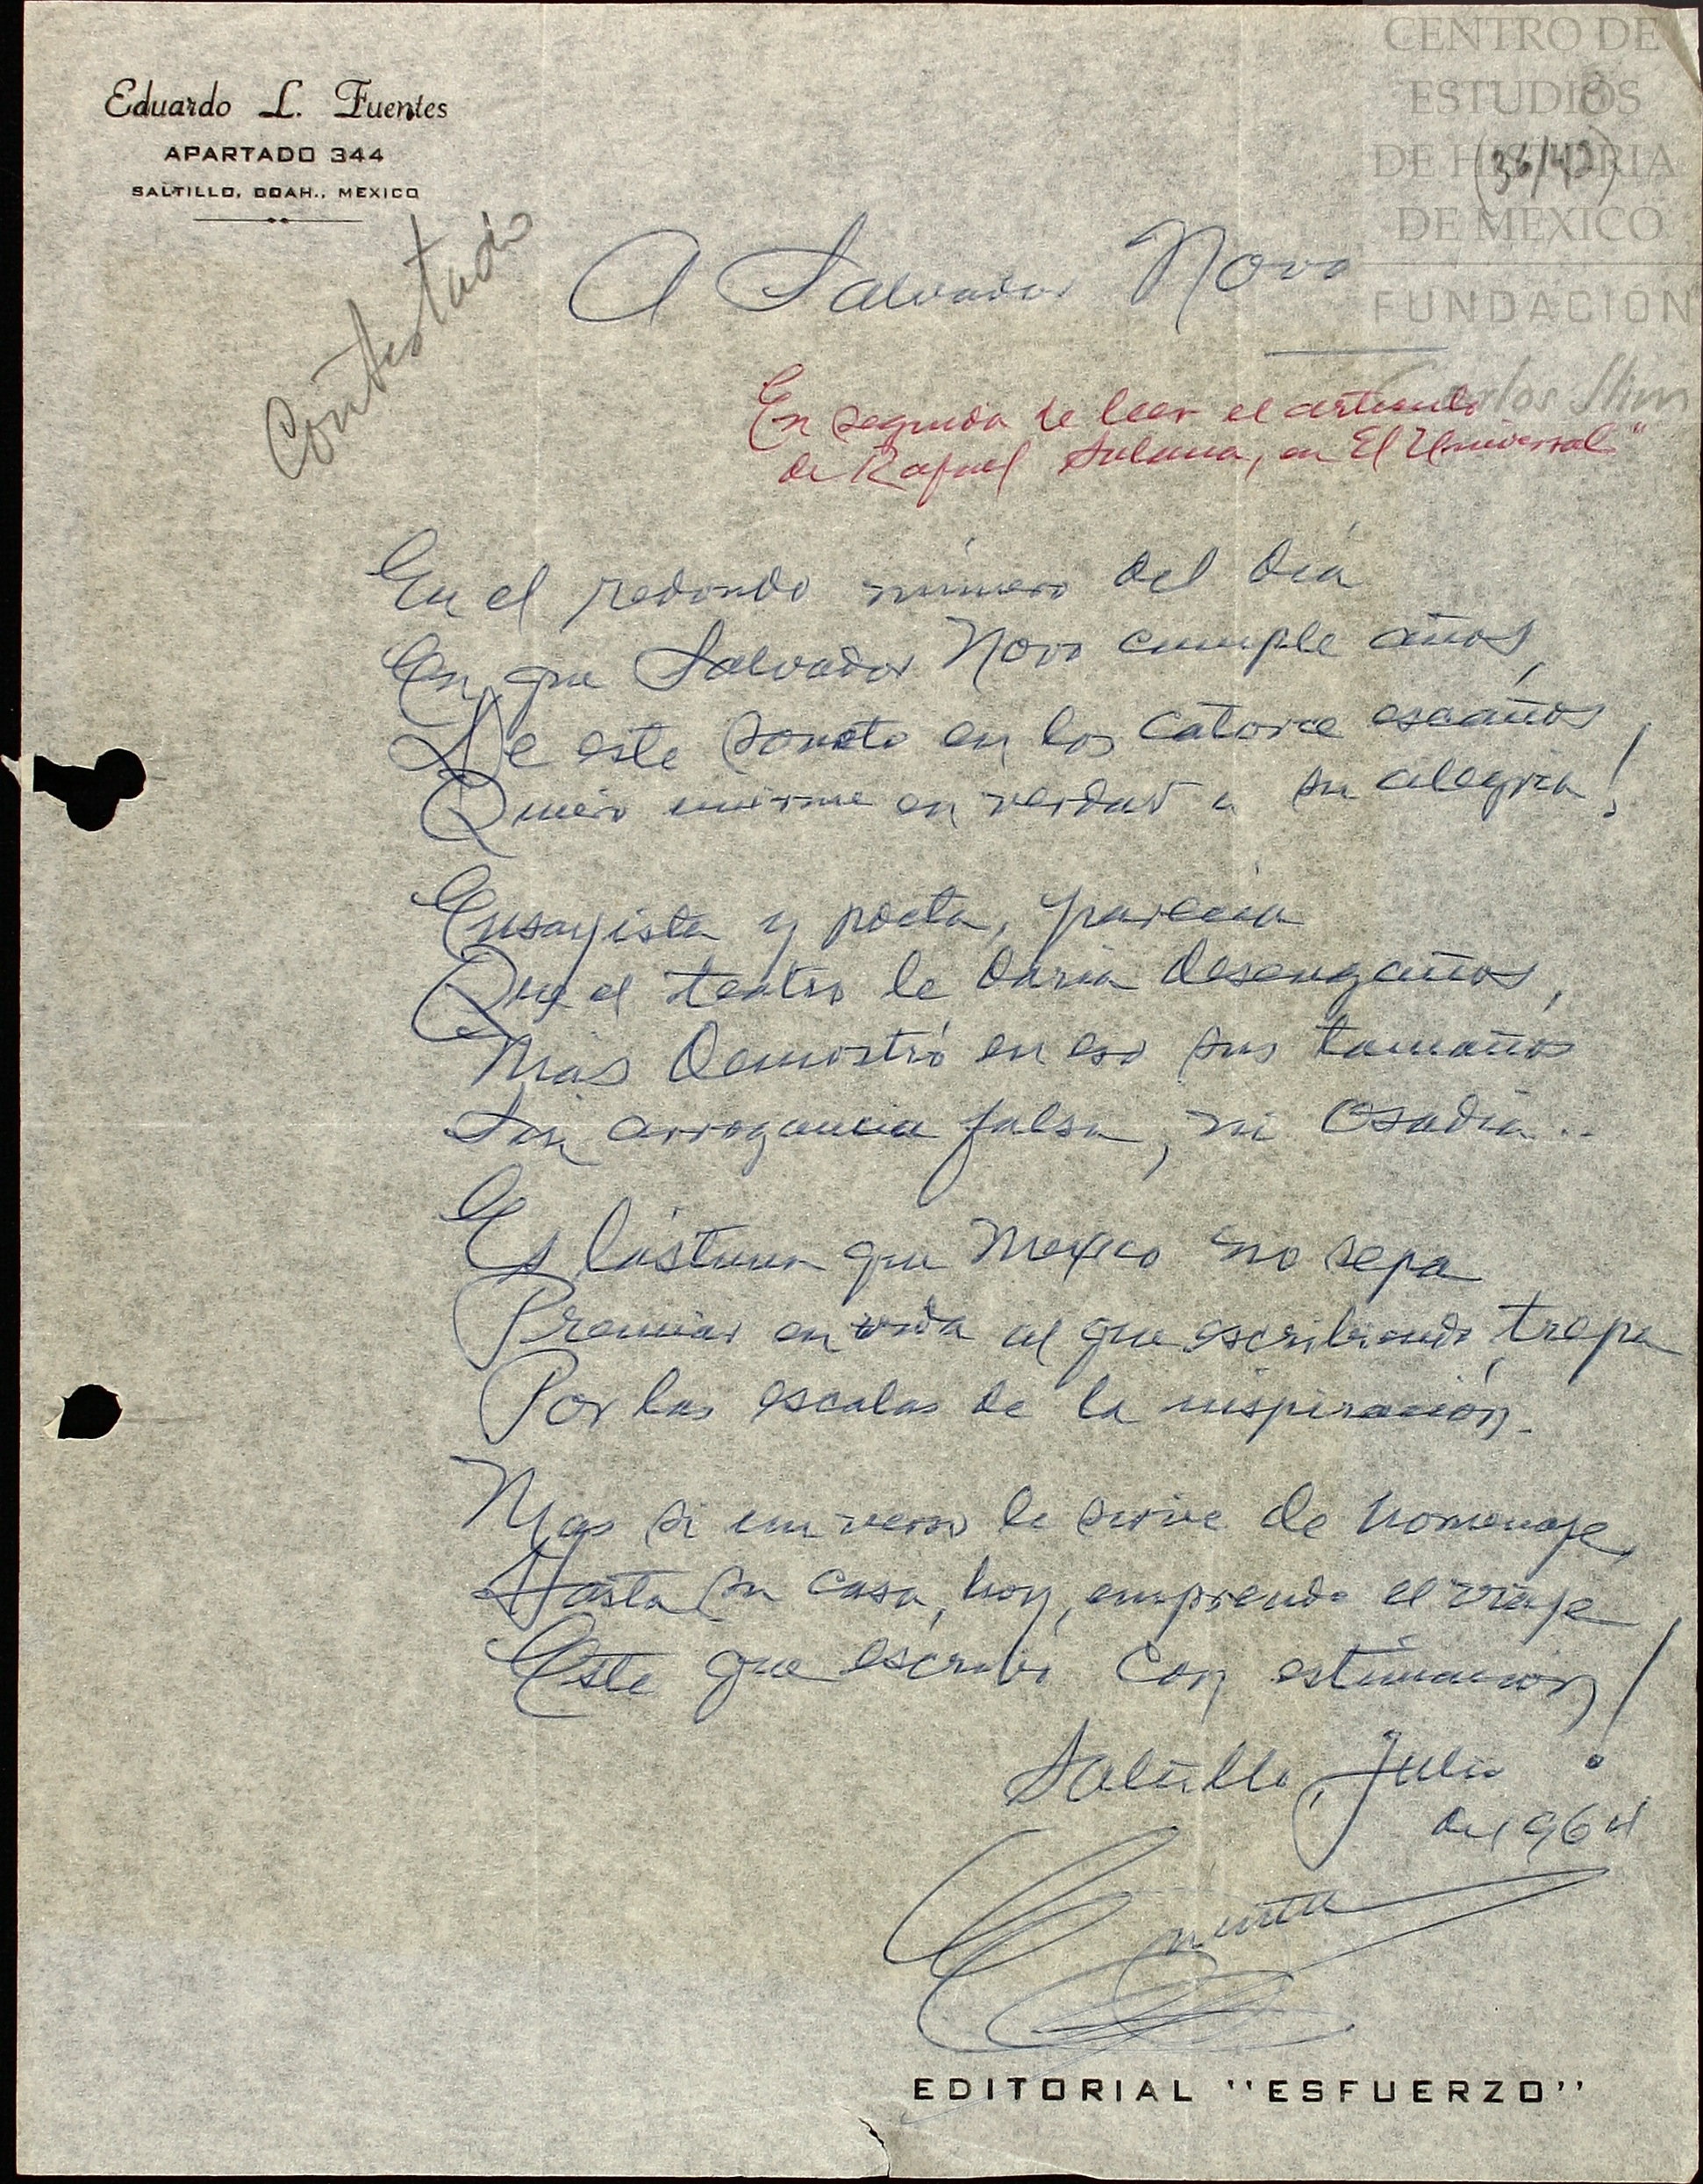 CENTRO DE
ESTUDIOS
DE HISTORIA
DE MEXICO
FUNDACIÓN
Carlos Slim
Eduardo L. Fuentes
APARTADO 344
SALTILLO, COAH., MEXICO
(36/42)
Contestado
A Salvador Novo
En seguida de leer el artículo
de Rafael Solana, en El Universal"
En el redondo número del día
En que Salvador Novo cumple años,
De este soneto en los catorce escaños
Quiero unirme en verdad a su alegría!
Ensayista y poeta, parecía
Que el teatro le daría desengaños,
Mas demostró en eso sus tamaños
Sin arrogancia falsa, ni osadía..
Es lástima que Mexico no sepa
Premiar en vida al que escribiendo, trepa
Por las escalas de la inspiración.
Mas si un verso le sirve de homenaje,
Hasta su casa, hoy, emprende el viaje
Este que escribí con estimación!
Saltillo, Julio
de 1964
EDITORIAL "ESFUERZO"